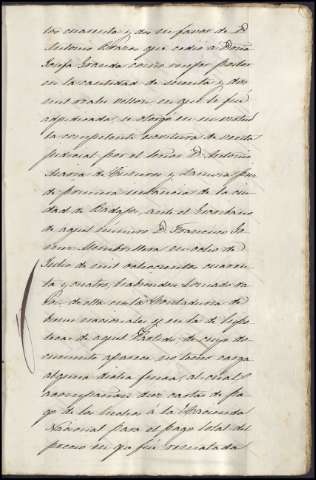 tos cuarenta y dos en favor de D.
Antonio que cedió a Doña
Josefa Granda como mejor postor
en la cantidad de y dos
mil reales vellon en que le fué
adjudicada, se otorgó en su virtud
la competente escritura de venta
judicial por el Señor D. Antonio
Maria de y Juez
de primera instancia de la ciu-
dad de Badajoz, ante el Escribano
de aquel numero D. Francisco Ja-
vier Membrillera en ocho de
Julio de mil ochocientos cuaren-
ta y cuatro, habiendose tomado ra-
zon de ella en la Contaduria de
bienes nacionales y en la de hipo-
tecas de aquel Partido, de cuyo do-
cumento aparece no tener carga
alguna dicha finca, al cual
acompañan diez cartas de pa-
go de los hechos á la Hacienda
Nacional para el pago total del
precio en que fué rematada